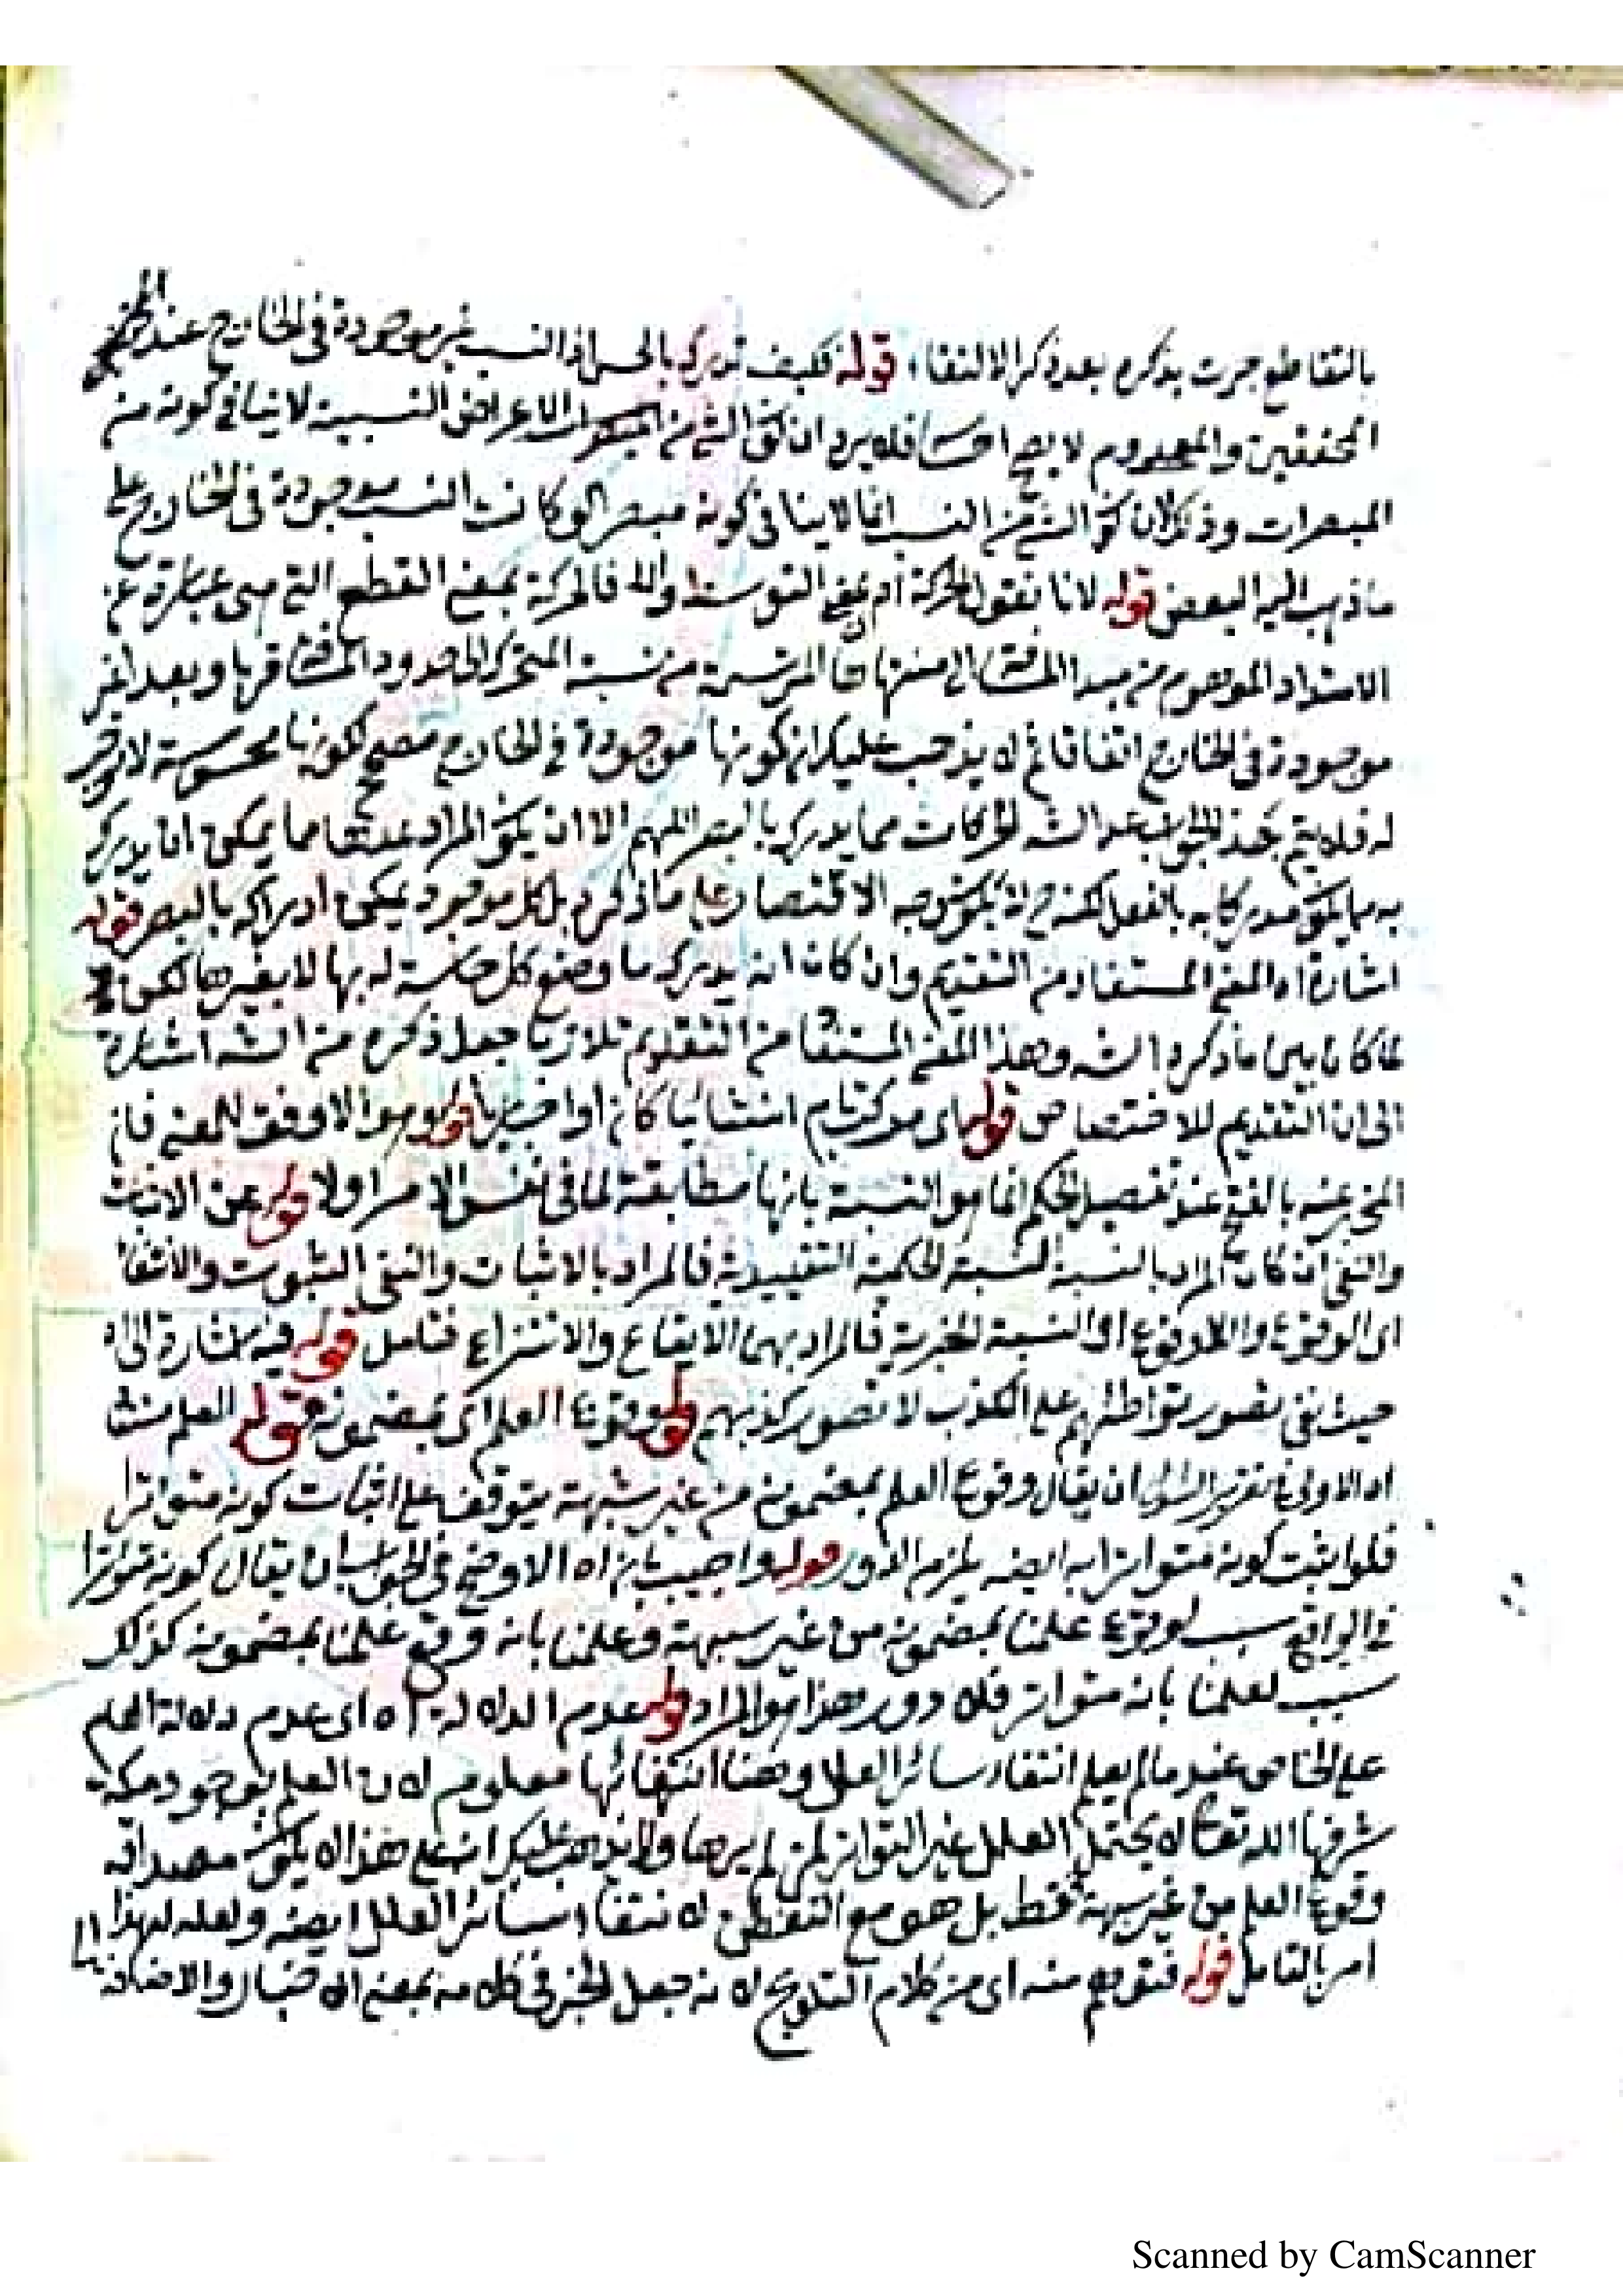 بالتقاطع جرت بذكره بعد ذكر الالتقاء قوله فكيف تدرك بالحس اذ النسب غير موجودة في الخارج عند
المحققين والمعدوم لا يصح احساسا فلا يرد ان كون الشئ من الاعراض النسبية لا ينافي كونه من
المبصرات وذلك لان كون الشئ من النسب انما لا ينافي كونه مبصرا لو كانت النسب موجودة في الخارج على
ما ذهب اليه البعض قوله لانا نقول الحركة اه بمعنى التوسط والا فالحركة بمعنى القطع التي هي عبارة عن
الامتداد الموهوم من مبدا المسافة الى منتهاها المرتسمة من نسبة المتحرك الى حدود المسافة قربا وبعدا غير
موجودة في الخارج اتفاقا ثم لا يذهب عليك ان كونها موجودة في الخارج مصحح لكونها محسوسة لا
له فلا يتم بهذا الجواب عد الش الحركات مما يدرك بالبصر اللهم الا ان يكون المراد عدها مما يمكن ان يدرك
به مما يكون مدركا به بالفعل لكنه ح لا يكون وجه الاقتصار على ما ذكره بل كل موجود يمكن ادراكه بالبصر قوله
اشارة اه المعنى المستفاد من التقديم وان كان انه يدرك ما وضع كل حاسة له بها لا بغيرها لكن
لما كان بين ما ذكره الش وهذا المعنى المستفا من التقديم تلازما جعل ذكره من الش اشارة
الى ان التقديم للاختصاص قوله اي مركب تام انشائيا كان او اخباريا قوله وهو الاوفق للمعنى فان
المخبر عنه بالفتح عند تفصيل الحكم انما هو النسبة بانها مطابقة لما في نفس الامر اولا قوله عن الاثبات
والنفي ان كان المراد بالنسبة النسبة الحكمية التقييدية فالمراد بالاثبات والنفي الثبوت والانتفا
اي الوقوع واللاوقوع او النسبة الخبرية فالمراد بهما الايقاع والانتزاع فتامل قوله فيه اشارة الى اه
حيث نفى تصور تواطئهم على الكذب لا تصور كذبهم قوله وقوع العلم اي بمضمونه قوله العلم مثبت
اه الاولى في تقرير السؤال ان يقال وقوع العلم بمضمونه من غير شبهة يتوقف على اثبات كونه متواترا
فلو اثبت كونه متواترا به ايضه يلزم الدور قوله واجيب بانه اه الاوضح في الجواب ان يقال كونه متواترا
في الواقع سبب لوقوع علمنا بمضمونه من غير شبهة وعلمنا بانه وقع علمنا بمضمونه كذلك
سبب لعلمنا بانه متواتر فلا دور هذا هو المراد قوله عدم الدلالة اه اي عدم دلالة العام
على الخاص عند ما لم يعلم انتفاء سائر العلل وهنا انتفائها معلوم لان العلم بوجود مكة
شرفها الله تعالى لا يحتمل العلل غير التواتر لمن لم يرها ولا يذهب عليك انه على هذا لا يكون مصداقه
وقوع العلم من غير شبهة فقط بل هو مع التفطن لانتفاء سائر العلل ايضه ولعله لهذا
امر بالتامل قوله فتوهم منه اي من كلام التلويح لانه جعل الخبر في كلامه بمعنى الاخبار والاضافة
Scanned by CamScanner